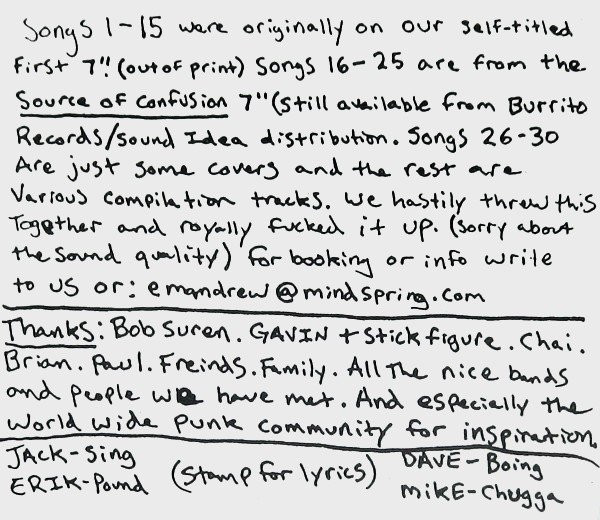 Songs 1-15 were originally on our self-titled
first 7". (out of print) Songs 16-25 are from the
Source of Confusion 7" (still available from Burrito
Records/Sound Idea distribution. Songs 26-30
Are just some covers and the rest are
Various compilation tracks. We hastily threw this
Together and royally fucked it up. (sorry about
the sound quality) for booking or info write
to us or: emandrew@mindspring.com
Thanks: Bob Suren. GAVIN + Stick figure. Chai.
Brian. Paul. Freinds. Family. All The nice bands
and people we have met. And especially the
World wide punk community for inspiration.
JACK-Sing
ERIK-Pound
(Stamp for lyrics)
DAVE-Boing
MikE-Chugga